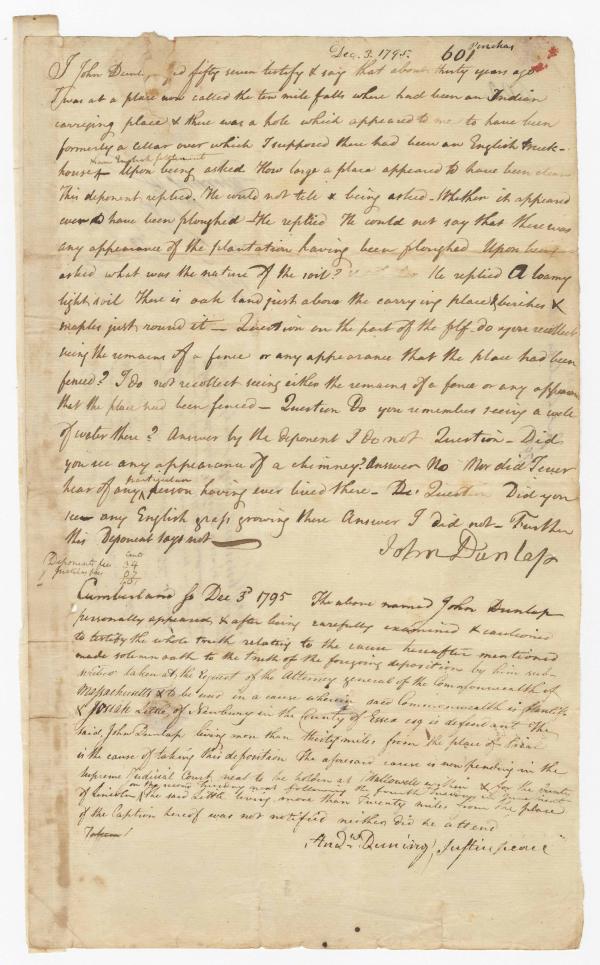 Dec. 3. 1795. 601
I John Dunlap aged fifty seven testify & say that about thirty years ago
I was at a place now called the ten mile falls where had been an Indian
carrying place & there was a hole which appeared to me to have been
formerly a cellar over which I supposed there had been an English truck-
& an English settlement
house Upon being asked How large a place appeared to have been clear
This deponent replied. He could not tele & being asked - Whether it appeared
ever to have been ploughed - He replied He could not say that there was
any appearance of the plantation having been ploughed Upon being
asked what was the nature of the soil? He replied A loamy
light soil There is oak land just above the carrying place & birches &
maples just round it - Question on the part of the plf - do you recollect
seing the remains of a fence or any appearance that the place had been
fenced? I do not recollect seeing either the remains of a fence or any appearance
that the place had been fenced - Question Do you remember seeing a well
of water there? Answer by the deponent I do not Question - Did
you see any appearance of a chimney? Answer No Nor did I ever
particular
hear of any person having ever lived there - Question Did you
see any English grass growing there Answer I did not - Further
this Deponent says not
John Dunlap
cents
Deponents fee 34
Justices fee
Cumberland ss Dec 3d 1795 The above named John Dunlap
personally appeared & after being carefully examined & cautioned
to testify the whole truth relating to the cause hereafter mentioned
made solemn oath to the truth of the foregoing deposition by him sub-
scribed taken at the request of the Attorney general of the Commonwealth of
Massachusetts & to be used in a cause wherein said Commonwealth is plantiff
& Josiah Little of Newbury in the County of Essex esq is defendant The
said John Dunlap living more than thirty miles from the place of trial
is the cause of taking this deposition The aforesaid cause is now pending in the
Supreme Judicial Court next to be holden at Hallowell within & for the County
on the second tuesday next following the fourth tuesday of June next
of Lincoln & the said Little living more than Twenty miles from the place
of the Caption hereof was not notified neither did he attend
Taken
And.w Dunning Justice peace